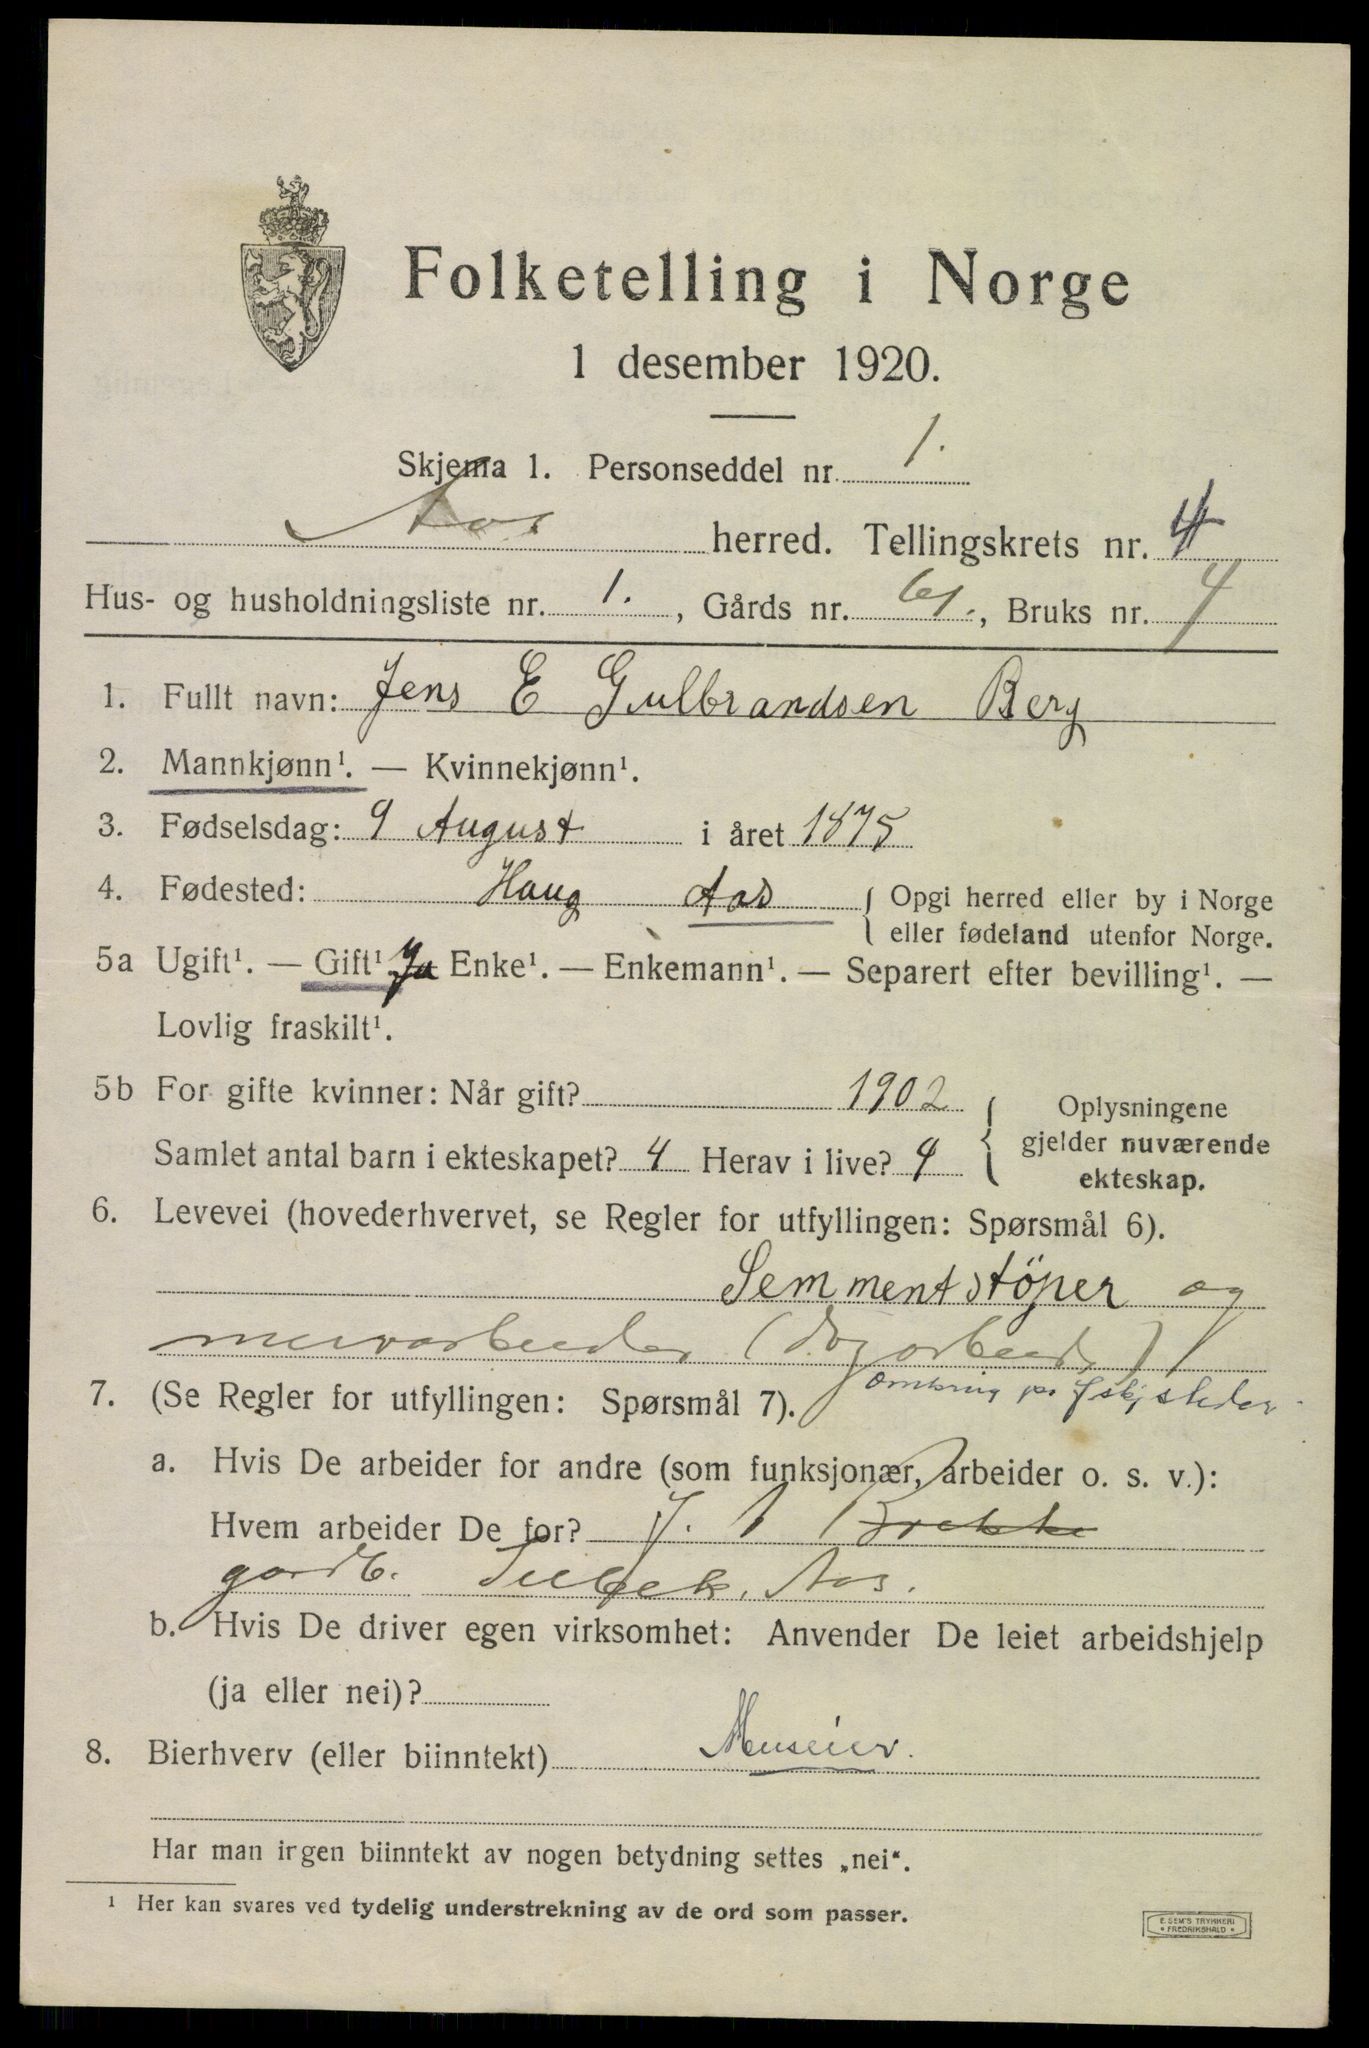 Folketelling i Norge
1 desember 1920.
Skjema 1. Personseddel nr. 1.
Aas herred. Tellingskrets nr. 4
Hus- og husholdningsliste nr. 1., Gårds nr. 61., Bruks nr. 4
1. Fullt navn: Jens E Gulbrandsen Berg
2. Mannkjønn¹. — Kvinnekjønn¹.
3. Fødselsdag: 9 August i året 1875
4. Fødested: Haug Aas { Opgi herred eller by i Norge
eller fødeland utenfor Norge.
5a Ugift¹. — Gift¹ Ja Enke¹. — Enkemann¹. — Separert efter bevilling¹. —
Lovlig fraskilt¹.
5b For gifte kvinner: Når gift? 1902 { Oplysningene
gjelder nuværende
ekteskap.
Samlet antal barn i ekteskapet? 4 Herav i live? 4
6. Levevei (hovederhvervet, se Regler for utfyllingen: Spørsmål 6).
Semmentstöper og
murarbeider (
7. (Se Regler for utfyllingen: Spørsmål 7). omkring på
a. Hvis De arbeider for andre (som funksjonær, arbeider o. s. v.):
Hvem arbeider De for? J. Brekke
gardb. Aas.
b. Hvis De driver egen virksomhet: Anvender De leiet arbeidshjelp
(ja eller nei)?
8. Bierhverv (eller biinntekt) Huseier.
Har man irgen biinntekt av nogen betydning settes „nei“.
¹ Her kan svares ved tydelig understrekning av de ord som passer.
E. SEM'S TRYKKERI
* FREDRIKSHALD *